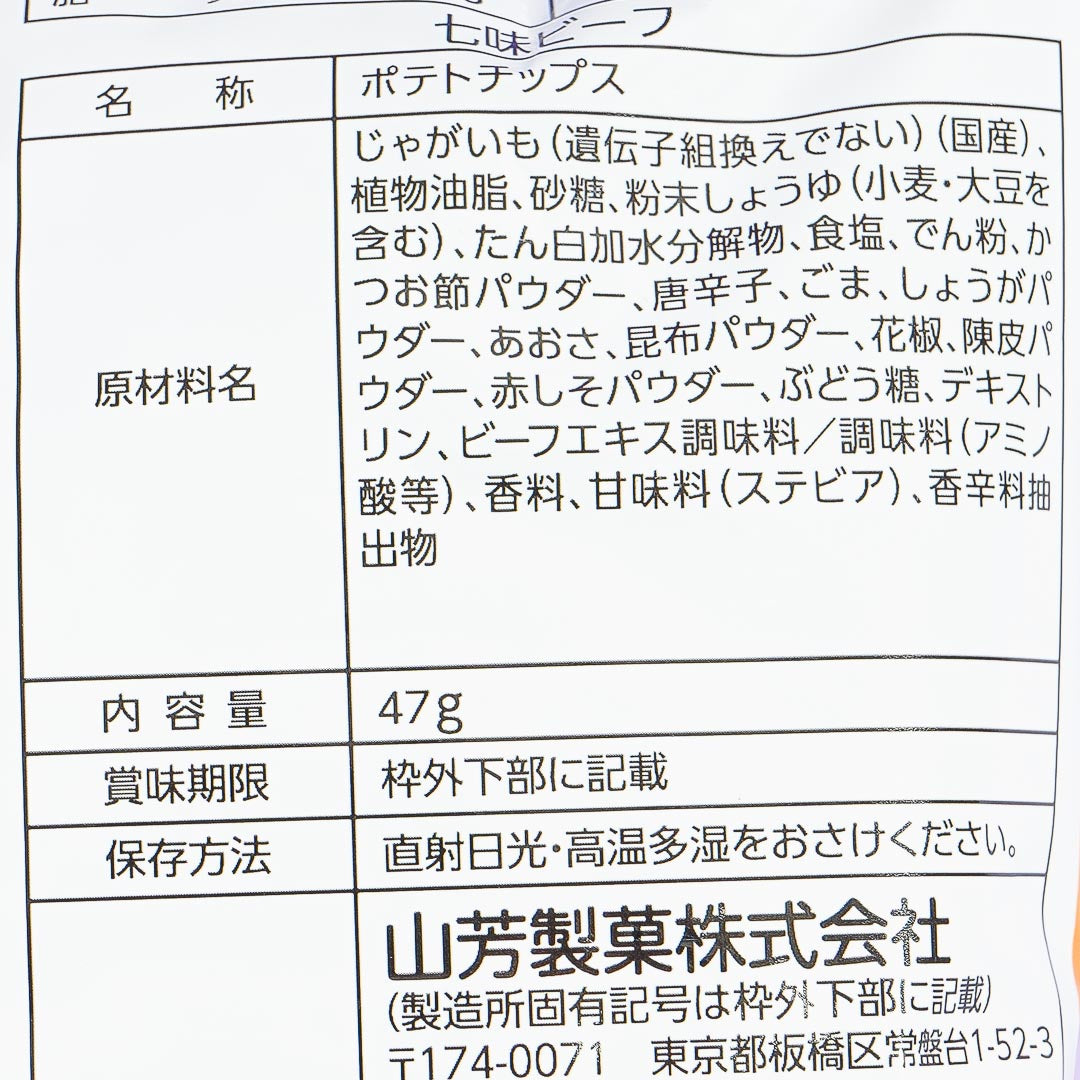 七味ビーフ
名称 ポテトチップス
原材料名
じゃがいも(遺伝子組換えでない)(国産)、
植物油脂、砂糖、粉末しょうゆ(小麦・大豆を
含む)、たん白加水分解物、食塩、でん粉、か
つお節パウダー、唐辛子、ごま、しょうがパ
ウダー、あおさ、昆布パウダー、花椒、陳皮パ
ウダー、赤しそパウダー、ぶどう糖、デキスト
リン、ビーフエキス調味料／調味料(アミノ
酸等)、香料、甘味料(ステビア)、香辛料抽
出物
内容量 47g
賞味期限 枠外下部に記載
保存方法 直射日光・高温多湿をおさけください。
山芳製菓株式会社
(製造所固有記号は枠外下部に記載)
〒174-0071 東京都板橋区常盤台1-52-3